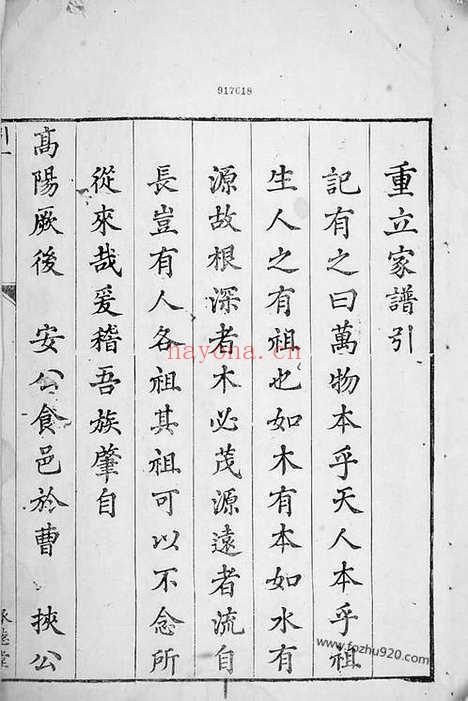 917618
重立家譜引
記有之曰萬物本乎天人本乎祖
生人之有祖也如木有本如水有
源故根深者木必茂源遠者流自
長豈有人各祖其祖可以不念所
從來哉爰稽吾族肇自
高陽厥後 安公食邑於曹 挾公
引一
hayona.cn
www.fozhu920.com